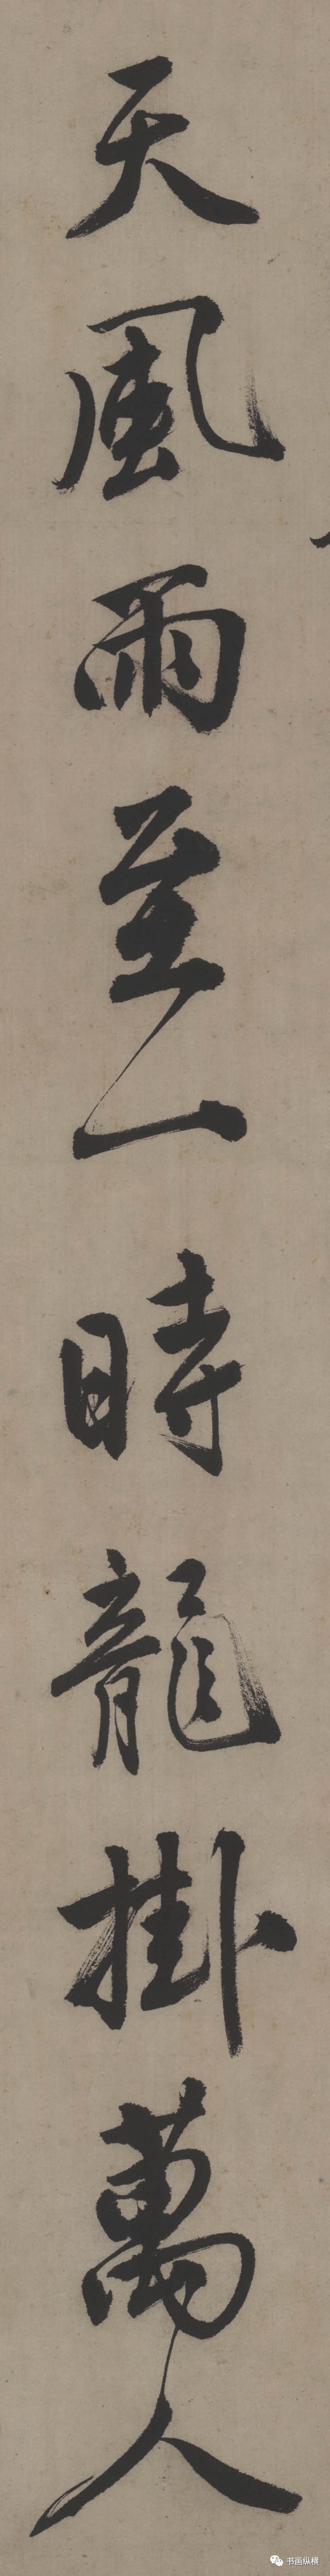 天風雨至一時龍掛萬人
书画纵横